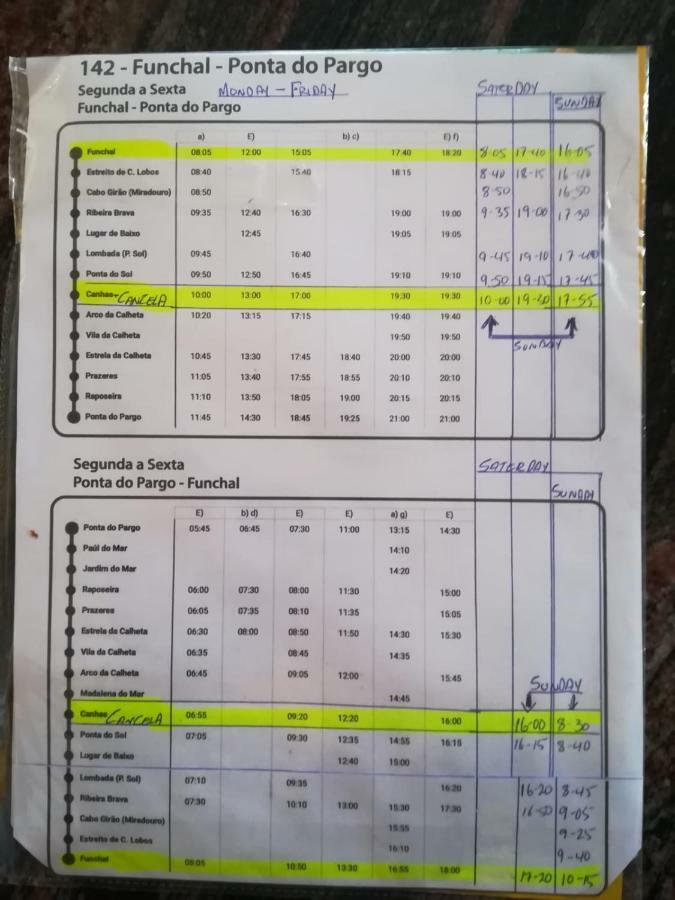 142 - Funchal - Ponta do Pargo
Segunda a Sexta MONDAY - FRIDAY SATERDAY
Funchal - Ponta do Pargo SUNDAY
a) E) b) c) E) f)
Funchal 08:05 12:00 15:05 17:40 18:20 8-05 17-40 16-05
Estreito de C. Lobos 08:40 15:40 18:15 8-40 18-15 16-40
Cabo Girão (Miradouro) 08:50 8-50 16-50
Ribeira Brava 09:35 12:40 16:30 19:00 19:00 9-35 19-00 17-30
Lugar de Baixo 12:45 19:05 19:05
Lombada (P. Sol) 09:45 16:40 9-45 19-10 17-40
Ponta do Sol 09:50 12:50 16:45 19:10 19:10 9-50 19-15 17-45
Canhas - CANCELA 10:00 13:00 17:00 19:30 19:30 10-00 17-55
Arco da Calheta 10:20 13:15 17:15 19:40 19:40
Vila da Calheta 19:50 19:50
SUNDAY
Estrela da Calheta 10:45 13:30 17:45 18:40 20:00 20:00
Prazeres 11:05 13:40 17:55 18:55 20:10 20:10
Raposeira 11:10 13:50 18:05 19:00 20:15 20:15
Ponta do Pargo 11:45 14:30 18:45 19:25 21:00 21:00
Segunda a Sexta SATERDAY
Ponta do Pargo - Funchal SUNDAY
E) b) d) E) E) a) g) E)
Ponta do Pargo 05:45 06:45 07:30 11:00 13:15 14:30
Paúl do Mar 14:10
Jardim do Mar 14:20
Raposeira 06:00 07:30 08:00 11:30 15:00
Prazeres 06:05 07:35 08:10 11:35 15:05
Estrela da Calheta 06:30 08:00 08:50 11:50 14:30 15:30
Vila da Calheta 06:35 08:45 14:35
Arco da Calheta 06:45 09:05 12:00 15:45
SUNDAY
Madalena do Mar 14:45
Canhas CANCELA 06:55 09:20 12:20 16:00 16-00 8-30
Ponta do Sol 07:05 09:30 12:35 14:55 16:15 16-15 8-40
Lugar de Baixo 12:40 15:00
Lombada (P. Sol) 07:10 09:35 16:20 16-20 8-45
Ribeira Brava 07:30 10:10 13:00 15:30 17:30 9-05
Cabo Girão (Miradouro) 15:55 9-25
Estreito de C. Lobos 16:10 9-40
Funchal 08:05 10:50 13:30 16:55 18:00 17-20 10-15